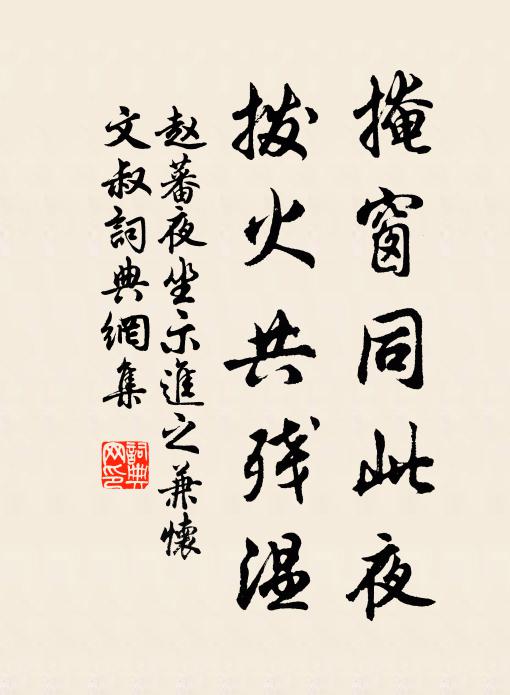 掩窗同此夜
拨火共残温
赵蕃夜坐示進之兼懷
文叔詞典網集
詞典网印